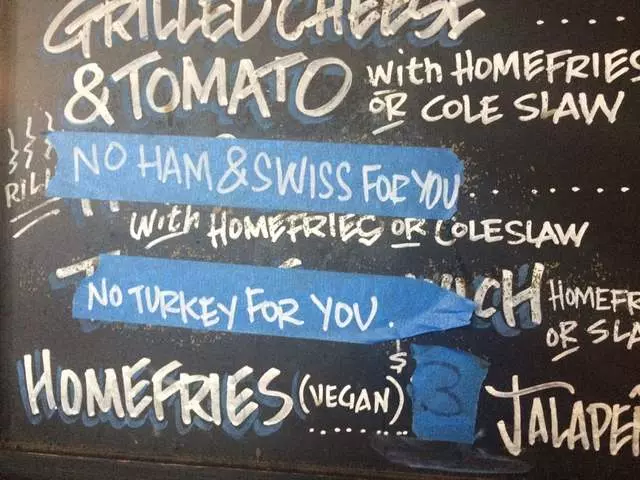 GRILLED CHEESE ....
& TOMATO with HOMEFRIES
OR COLE SLAW
NO HAM & SWISS FOR YOU ........
with HOMEFRIES OR COLESLAW
NO TURKEY FOR YOU.
HOMEFR
OR SLA
HOMEFRIES (VEGAN) ....... $ 3
JALAPEÑ